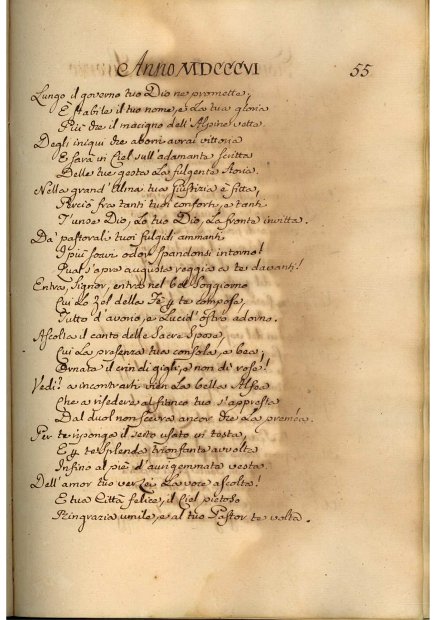 Anno MDCCCVI 55
Lungo il governo tuo Dio ne promette,
È stabile il tuo nome, e la tua gloria
Più che il macigno dell'Alpine vette.
Degli iniqui che aborri avrai vittoria
E sarà in Ciel sull'adamante scritta
Delle tue gesta la fulgente storia.
Nella grand'Alma tua giustizia è fitta,
Perciò fra tanti tuoi conforti, e tanti
T'unse Dio, lo tuo Dio, la fronte invitta.
Da' pastorali tuoi fulgidi ammanti
I più soavi odor spandonsi intorno!
Qual s'apre augusta reggia a te davanti!
Entra, Signor, entra nel bel soggiorno
Cui lo Zel della Fè te compose,
Tutto d'avorio, e lucid'ostro adorno.
Ascolta il canto delle Sacre Spose,
Cui la presenza tua consola, e bea;
Ornate il crin di gigli, e non di rose!
Vedi? a incontrarti vien la bella
Che a risedere al fianco tuo s'appresta
Dal duol non scevra ancor che la premea.
Per te ripongo il serto usato in testa
E te splende trionfante avvolta
Infino al piè d'auri gemmata vesta.
Dell'amor tuo la voce ascolta!
E tua Città felice, il Ciel pietoso
Ringrazia umile, e al tuo Pastor te volta.